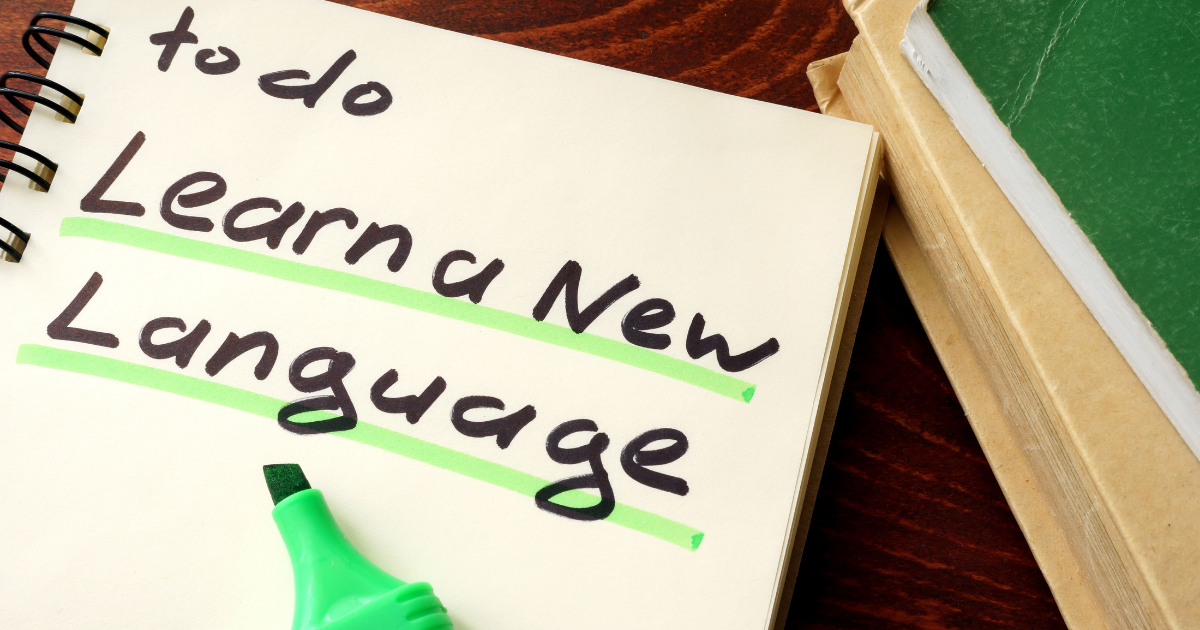 to do
Learn a New
Language